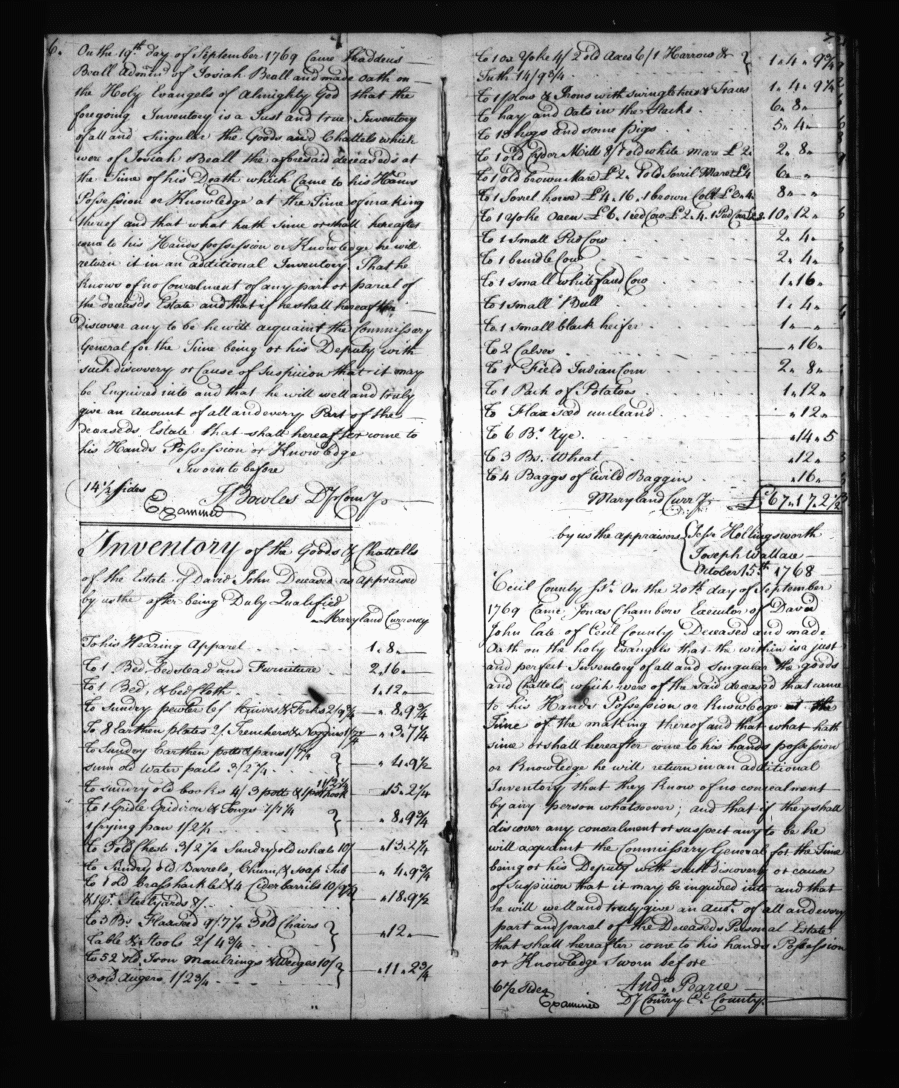 6.
On the 19th day of September 1769 Came Thaddeus
Beall Admr. of Josiah Beall and made oath on
the Holy Evangels of Almighty God that the
foregoing Inventory is a Just and true Inventory
of all and Singular the Goods and Chattels which
were of Josiah Beall the aforesaid deceased's at
the Time of his Death which Came to his Hands
Possession or Knowledge at the Time of making
thereof and that what hath Since or shall hereafter
come to his Hands possession or Knowledge he will
return it in an additional Inventory. That he
knows of no Concealment of any part or parcel of
the deceaseds Estate and that if he shall hereafter
Discover any to be he will acquaint the Commissary
General for the Time being or his Deputy with
such discovery or Cause of Suspicion that it may
be Enquired into and that he will well and truly
give an Amount of all and every Part of the
deceaseds Estate that shall hereafter come to
his Hands Possession or Knowledge
Sworn to before
14½ sides J Bowles Dy Comry
Examined
Inventory of the Goods & Chattells
of the Estate of David John Deceased as appraised
by us the after being Duly Qualified
Maryland Currency
To his Wearing Apparel 1. 8. —
To 1 Bed bedstead and Furniture 2. 16. —
To 1 Bed, & bed Cloth 1. 12 —
To Sundry pewter 6/ Knives & Forks 2/9¾ —. 8. 9¾
To 8 Earthen plates 2/ Trenchers & Noggins 1/7¼ —. 3. 7¼
To Sundry Earthen potts & pans 1/7¼
sum old Water pails 3/2¼ } — 4. 9½
To Sundry old books 4/ 3 potts & 1 pothook 11/2¼ — .15. 2¼
To 1 Gridle Gridiron & Tongs 7/7¼
1 frying pan 1/2½ } —. 8. 9¾
To 3 old Chests 3/2¼ Sundry old wheels 10/ —. 13. 2¼
To Sundry old Barrels, Churn & soap Tub —. 4. 9¾
To 1 old brass hackle & 4 Cider barrils 10/9¼
& 1 pr. Steelyards 8/. — .18. 9½
To 3 Bs. Flaxseed 9/7¼ 3 old Chairs
Table & Stools 2/4¾ } —. 12 —
To 52 old Iron Maulrings & Wedges 10/
3 old Augers 1/2¾ } — .11. 2¾
To 1 ox Yoke 4/ 2 old Axes 6/ 1 Harrow &
Teeth 14/9¾ } 1. 4. 9¾
To 1 plow & Irons with swingletree & Traces 1. 4. 9¾
To hay and Oats in the Stacks 6. 8. —
To 18 hogs and some pigs 5. 4. —
To 1 old Cyder Mill 8/ 1 old white mare £2. 2. 8. —
To 1 old brown Mare £2. 1 old Sorril Mare £4 6. — —
To 1 Sorrel horse £4. 16. 1 brown Colt £3. 4. 8. — —
To 1 Yoke Oxens £6. 1 red Cow £2. 4. 1 Pied Cow £2. 8. 10. 12. —
To 1 Small Pied Cow 2. 4. —
To 1 brindle Cow 2. 4. —
To 1 small white faced Cow 1. 16 —
To 1 Small Bull 1. 4. —
To 1 Small black heifer 1. — —
To 2 Calves —. 16. —
To 1 Field Indian Corn 2. 8. —
To 1 Pach of Potatoes 1. 12. —
To Flax seed uncleand —. 12. —
To 6 Bs. Rye. — .14. 5
To 3 Bs. Wheat —. 12. —
To 4 Baggs of Wild Baggin —. 16. —
Maryland Curr.y £67. 17. 2½
by us the appraisers { Jesse Hollingsworth
Joseph Wallace
October 15th 1768
Cecil County Sst. On the 20th day of September
1769 Came Jonas Chambers Executor of David
John late of Cecil County Deceased and made
Oath on the holy Evangels that the within is a just
and perfect Inventory of all and Singular the goods
and Chattels which were of the said deceased that came
to his Hands Possession or Knowledge at the
Time of the making thereof and that what hath
since or shall hereafter come to his hands possession
or Knowledge he will return in an additional
Inventory that they know of no concealment
by any person whatsoever; and that if they shall
discover any concealment or suspect any to be he
will acquaint the Commissary General for the Time
being or his Deputy with such discovery or cause
of Suspicion that it may be inquired into and that
he will well and truly give an Acct. of all and every
part and parcel of the Deceaseds Personal Estate
that shall hereafter come to his hands Possession
or Knowledge Sworn before
6½ sides Andw Pearce
Examined Dy Comry Cc County.